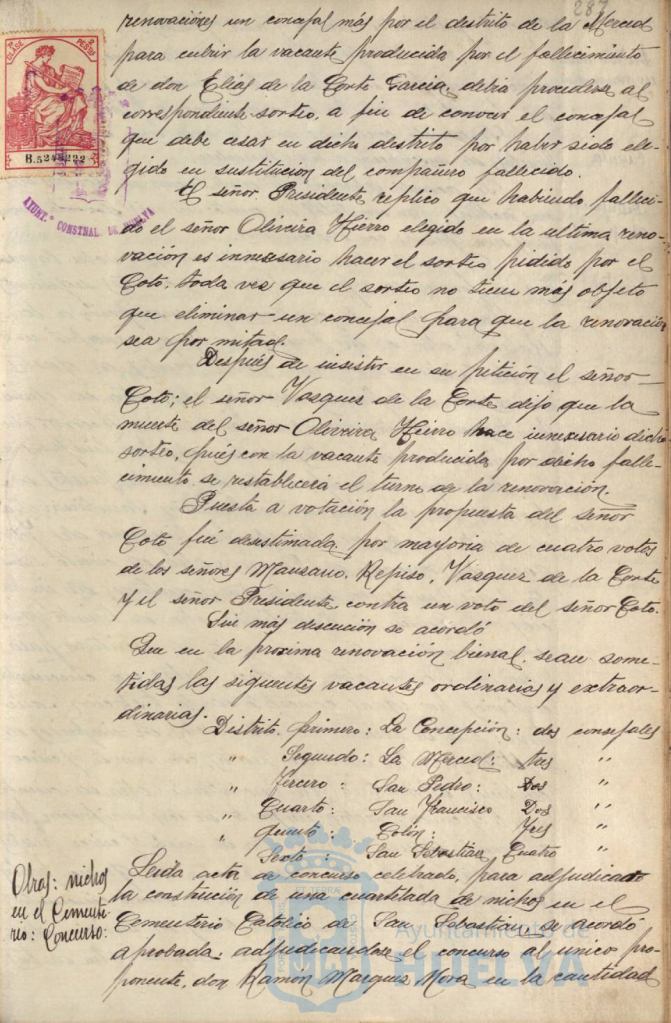 287
renovaciónes un concejal más por el distrito de la Merced
para cubrir la vacante producida por el fallecimiento
de don Elías de la Corte Garcia, debia procederse al
correspondiente sorteo, a fin de conocer el concejal
que debe cesar en dicho destrito por haber sido ele-
gido en sustitucion del compañero fallecido.
El señor Presidente replico que habiendo falleci-
do el señor Oliveira Hierro elegido en la ultima reno-
vación es innesesario hacer el sorteo pidido por el
Coto, toda vez que el sorteo no tiene más objeto
que eliminar un concejal para que la renovación
sea por mitad.
Después de insistir en su petición el señor
Coto; el señor Vazquez de la Corte dijo que la
muerte del señor Oliveira Hierro hace innesesario dicho
sorteo, pués con la vacante producida por dicho falle-
cimiento se restablecerá el turno de la renovación.
Puesta a votación la propuesta del señor
Coto fué desestimada por mayoria de cuatro votos
de los señores Manzano, Repiso, Vazquez de la Corte
y el señor Presidente contra un voto del señor Coto.
Sin más descución se acordó
Que en la proxima renovación bienal, sean some-
tidas las siguientes vacantes ordinarias y extraor-
dinarias.
Distrito, primero: La Concepción: dos consejales
" Segundo: La Merced: tres "
" Tercero: San Pedro: Dos "
" Cuarto: San Francisco Dos "
" quinto: Colón: Tres "
Sexto: San Sebastian Cuatro "
Obras: nichos
en el Cemente-
rio: Concurso:
Leida acta de concurso celebrado, para adjudicado
la construción de una cuartelada de nichos en el
Cementerio Catolico de San Sebastian, se acordó
aprobada, adjudicandose el concurso al unico pro-
ponente, don Ramón Marquez Mora en la cantidad
CLASE
PESETAS
B.5244232
AYUNT.º CONSTNAL. DE HUELVA
Ayuntamiento de
HUELVA